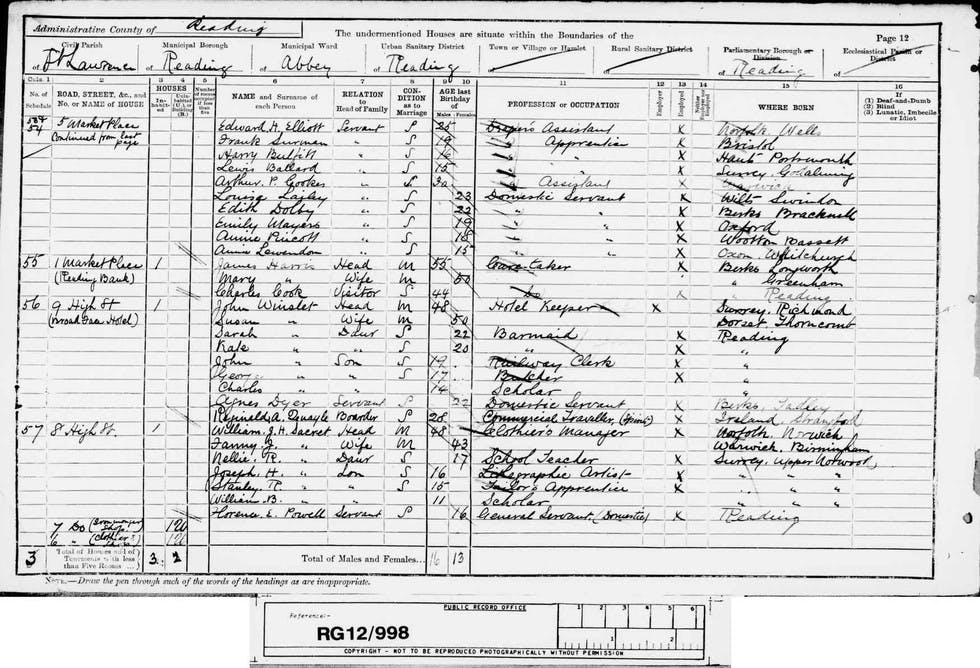 Administrative County of Reading
The undermentioned Houses are situate within the Boundaries of the
Page 12
Civil Parish of St Lawrence
Municipal Borough of Reading
Municipal Ward of Abbey
Urban Sanitary District of Reading
Town or Village or Hamlet of
Rural Sanitary District of
Parliamentary Borough or Division of Reading
Ecclesiastical Parish or District of
Cols. 1 2 3 4 5 6 7 8 9 10 11 12 13 14 15 16
No. of Schedule
ROAD, STREET, &c., and No. or NAME of HOUSE
HOUSES
Inhabited
Uninhabited (U.), or Building (B.)
Number of rooms occupied if less than five
NAME and Surname of each Person
RELATION to Head of Family
CONDITION as to Marriage
AGE last Birthday of
Males
Females
PROFESSION or OCCUPATION
Employer
Employed
Neither Employer nor Employed
WHERE BORN
If
(1) Deaf-and-Dumb
(2) Blind
(3) Lunatic, Imbecile or Idiot
54 5 Market Place Edward H. Elliott Servant S 25 Draper's Assistant X Norfolk Wells
Continued from last page Frank Surman " S 19 " Apprentice X Bristol
Harry " S 16 " " X Hants Portsmouth
Lewis Ballard " S 15 " " X Surrey Godalming
Arthur P. Cookes " S 30 " Assistant X Warwick
Louisa Lailey " S 23 Domestic Servant X Wilts Swindon
Edith Dolby " S 22 " " X Berks Bracknell
Emily Mayers " S 19 " " X Oxford
Annie Pincott " S 18 " " X Wootton Bassett
Annie Lewendon " S 15 " " X Oxon Whitchurch
55 1 Market Place 1 James Harris Head M 55 Care-taker X Berks Longworth
(Reading Bank) Mary " Wife M 50 " Greenham
Charles Cook Visitor S 44 X " Reading
56 9 High St 1 John Winslet Head M 48 Hotel Keeper X Surrey, Richmond
(Broad Face Hotel) Susan " Wife M 50 Dorset, Thorncomb
Sarah " Daur S 22 Barmaid X Reading
Kate " " S 20 " X "
John " Son S 19 Railway Clerk X "
George " " S 17 Butcher X "
Charles " " 14 Scholar "
Agnes Dyer Servant S 22 Domestic Servant X Berks, Tadley
Reginald A. Quayle Boarder S 28 Commercial Traveller, (Spirit) X Ireland
57 8 High St. 1 William J. H. Sacret Head M 48 Clothier's Manager X Norfolk, Norwich
Fanny J. " Wife M 43 Warwick, Birmingham
Nellie R. " Daur S 17 School Teacher X Surrey, Upper Norwood
Joseph H. " Son S 16 Lithographic Artist X " " "
Stanley R " " S 15 Tailor's Apprentice X " " "
William B. " " 11 Scholar " " "
Florence E. Powell Servant S 16 General Servant, (Domestic) X Reading
7 Do (Ironmonger's Shop) 1
6 " (Clothier's Shop) 1
3 Total of Houses and of Tenements with less than Five Rooms 3 2 Total of Males and Females... 16 13
NOTE.—Draw the pen through such of the words of the headings as are inappropriate.
PUBLIC RECORD OFFICE
1 2 3 4 5 6
Reference:-
RG12/998
1 2
COPYRIGHT - NOT TO BE REPRODUCED PHOTOGRAPHICALLY WITHOUT PERMISSION